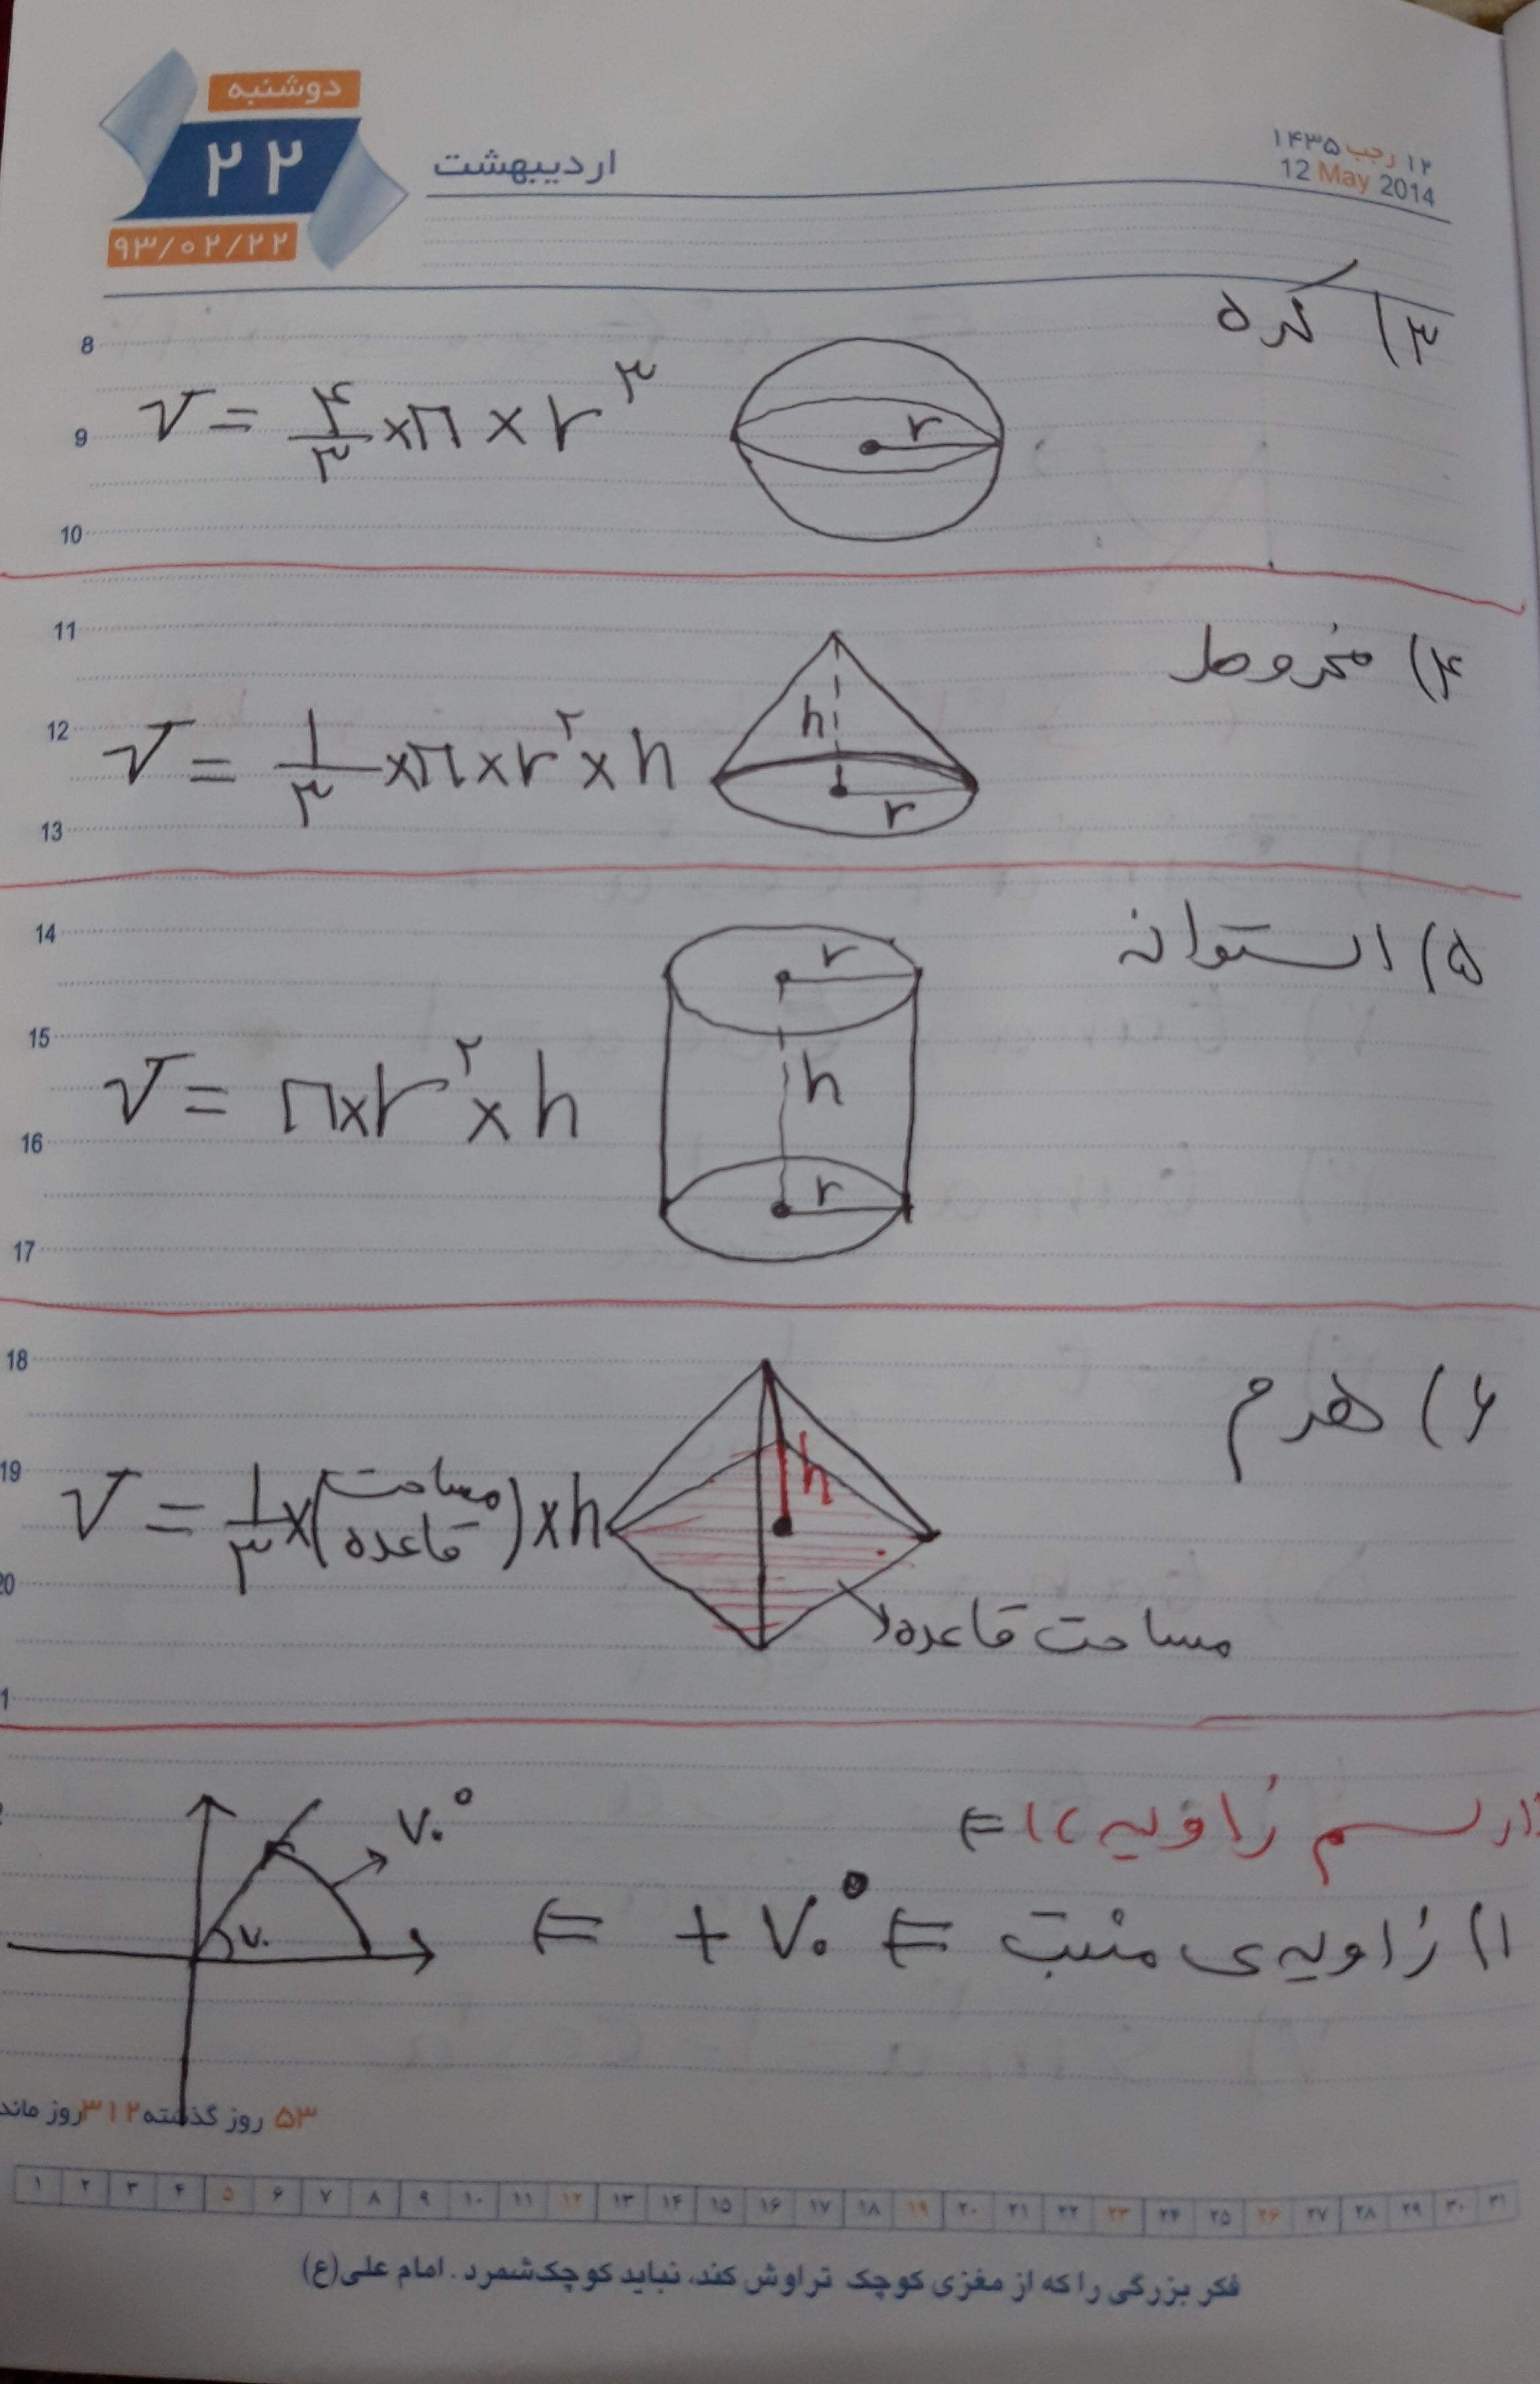 دوشنبه
۲۲
۹۳/۰۲/۲۲
اردیبهشت
۱۲ رجب ۱۴۳۵
12 May 2014
۳) کره
8
9
10
V = ۴/۳ × π × r^۳
r
۴) مخروط
11
12
13
V = ۱/۳ × π × r^۲ × h
h
r
۵) استوانه
14
15
16
17
V = π × r^۲ × h
r
h
r
۶) هرم
18
19
20
V = ۱/۳ × (مساحت قاعده) × h
h
مساحت قاعده
رسم زاویه) ⇐
۱) زاویه‌ی مثبت ⇐ +۷۰° ⇐
۷۰°
۷۰
۵۳ روز گذشته ۳۱۲ روز ماند
۱ ۲ ۳ ۴ ۵ ۶ ۷ ۸ ۹ ۱۰ ۱۱ ۱۲ ۱۳ ۱۴ ۱۵ ۱۶ ۱۷ ۱۸ ۱۹ ۲۰ ۲۱ ۲۲ ۲۳ ۲۴ ۲۵ ۲۶ ۲۷ ۲۸ ۲۹ ۳۰ ۳۱
فکر بزرگی را که از مغزی کوچک تراوش کند، نباید کوچک شمرد. امام علی(ع)